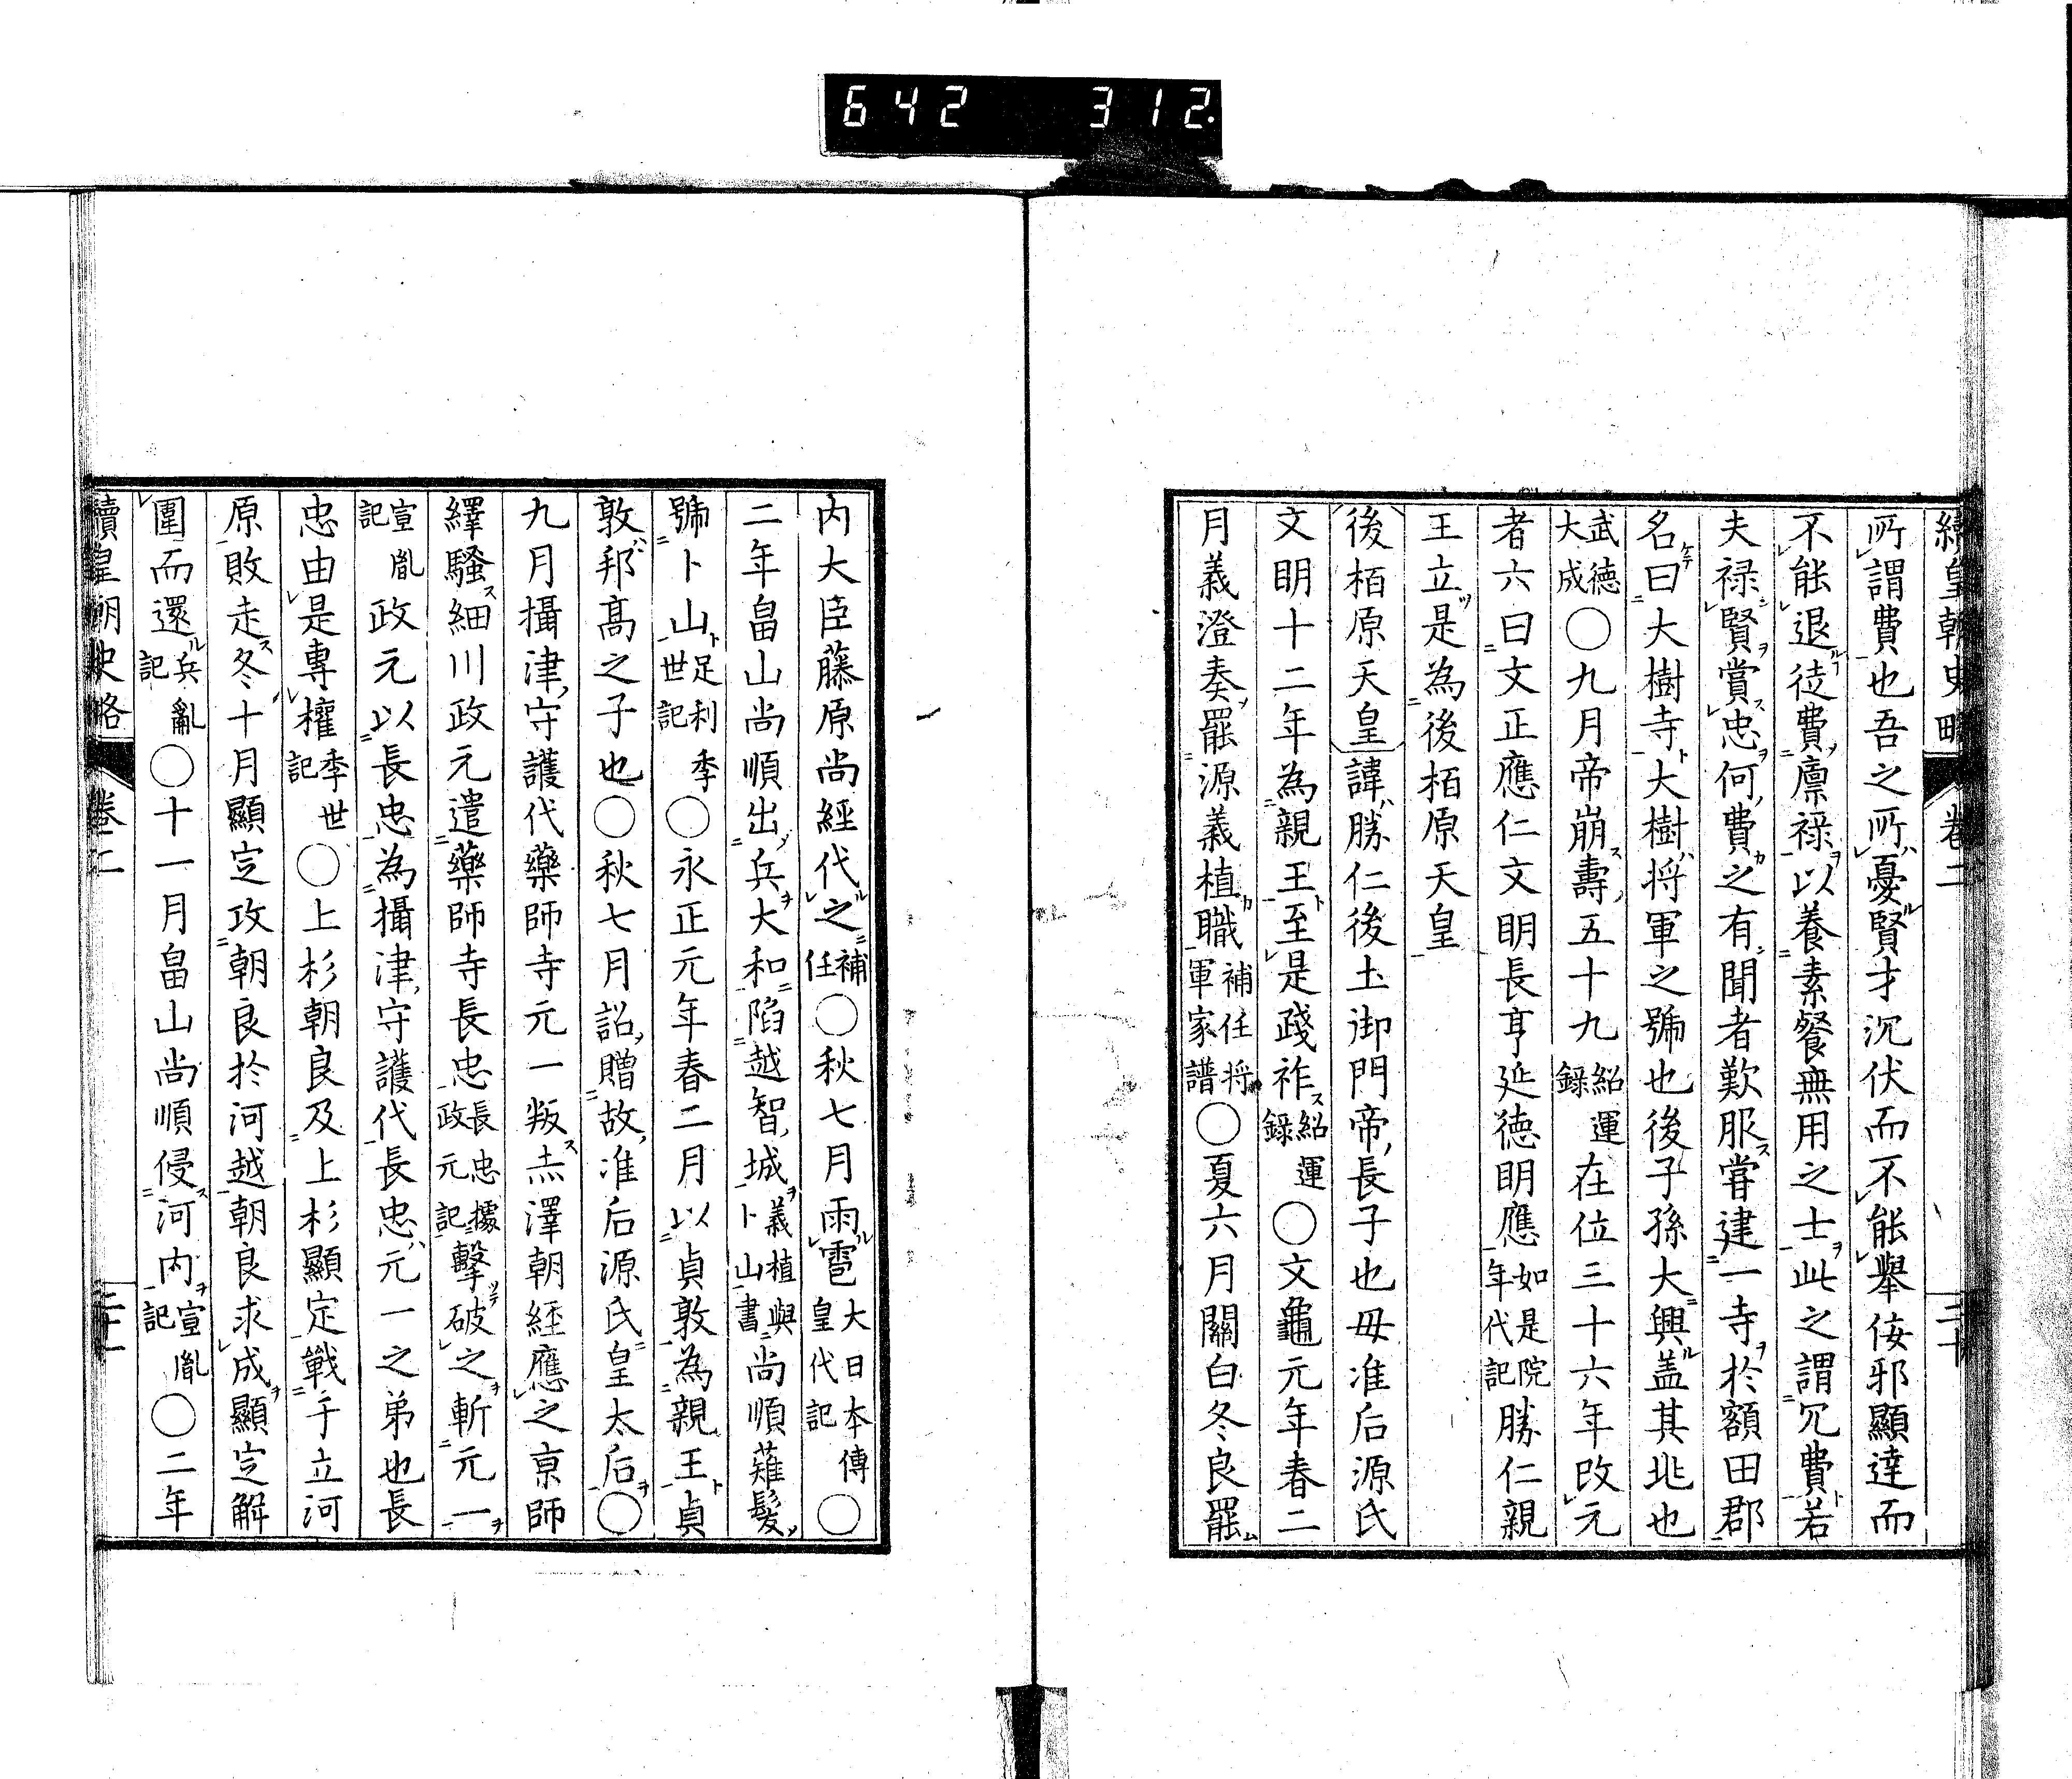 642 312.
續皇朝史略 卷二 二十
所謂費也吾之所憂賢才沉伏而不能擧侫邪顯達而
不能退徒費廩祿以養素餐無用之士此之謂冗費若
夫祿賢賞忠何費之有聞者歎服嘗建一寺於額田郡
名曰大樹寺大樹將軍之號也後子孫大興盖其兆也
武德大成〇九月帝崩壽五十九紹運錄在位三十六年改元
者六曰文正應仁文明長亨延德明應如是院年代記勝仁親
王立是為後栢原天皇
後栢原天皇諱勝仁後土御門帝長子也母准后源氏
文明十二年為親王至是踐祚紹運錄〇文龜元年春二
月義澄奏罷源義植職補任將軍家譜〇夏六月關白冬良罷
内大臣藤原尚經代之補任〇秋七月雨雹大日本傳皇代記〇
二年畠山尚順出兵大和陷越智城義植與卜山書尚順薙髮
號卜山足利季世記〇永正元年春二月以貞敦為親王貞
敦邦髙之子也〇秋七月詔贈故准后源氏皇太后〇
九月攝津守護代藥師寺元一叛赤澤朝經應之京師
繹騷細川政元遣藥師寺長忠長忠據政元記擊破之斬元一
宣胤記政元以長忠為攝津守護代長忠元一之弟也長
忠由是專權季世記〇上杉朝良及上杉顯定戰于立河
原敗走冬十月顯定攻朝良於河越朝良求成顯定解
圍而還兵亂記〇十一月畠山尚順侵河内宣胤記〇二年
續皇朝史略 卷二 二十一